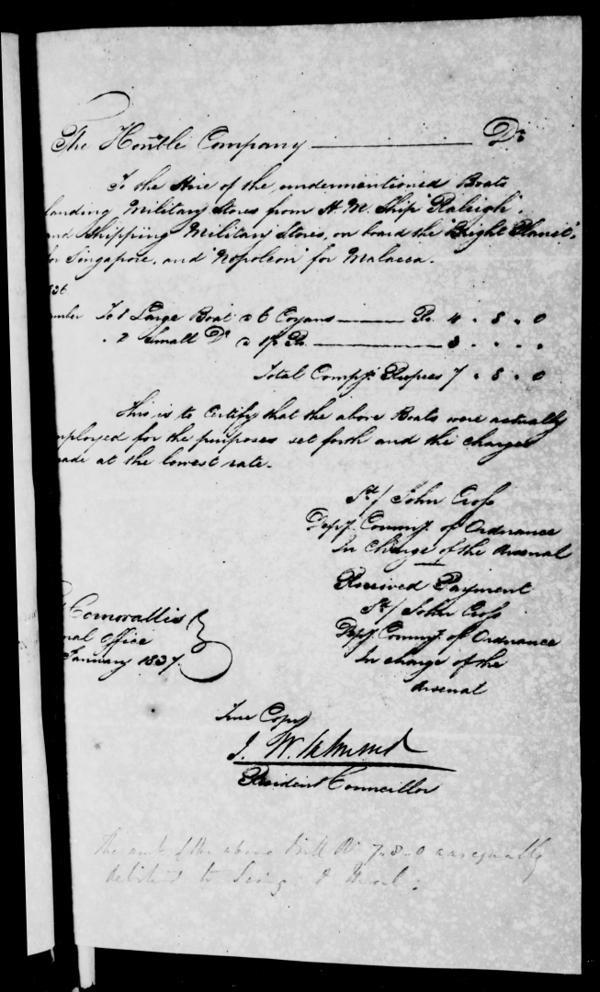 The Honble Company ———— Dr
To the Hire of the undermentioned Boats
landing Military Stores from H. M. Ship "Raleigh",
and Shipping Military Stores, on board the "Bright Planet",
for Singapore, and "Napoleon" for Malacca.
To 1 Large Boat a 6 Coyans ——— Rs. 4 . 8 . 0
. 2 Small Do a ——— 3 . . .
Total Compy. Rupees 7 . 8 . 0
This is to Certify that the above Boats were actually
employed for the purposes set forth and the charges
made at the lowest rate.
Sd/ John Cross
Depy. Commy. of Ordnance
In Charge of the Arsenal
Received Payment
Sd/ John Cross
Depy. Commy. of Ordnance
In charge of the
Arsenal
Cornwallis
office
January 1837
True Copy
Resident Councillor
The amt of the above Bill Rs 7-8-0 was equally
debited to